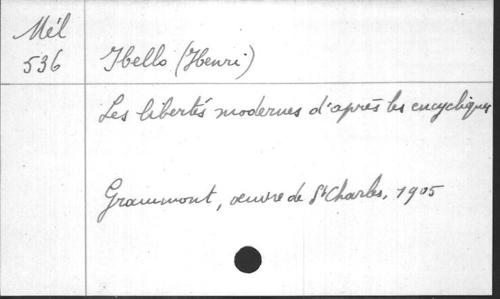 Mél
536
Hello (Henri)
Les libertés modernes d'après les encycliques
Grammont, œuvre de St Charles, 1905